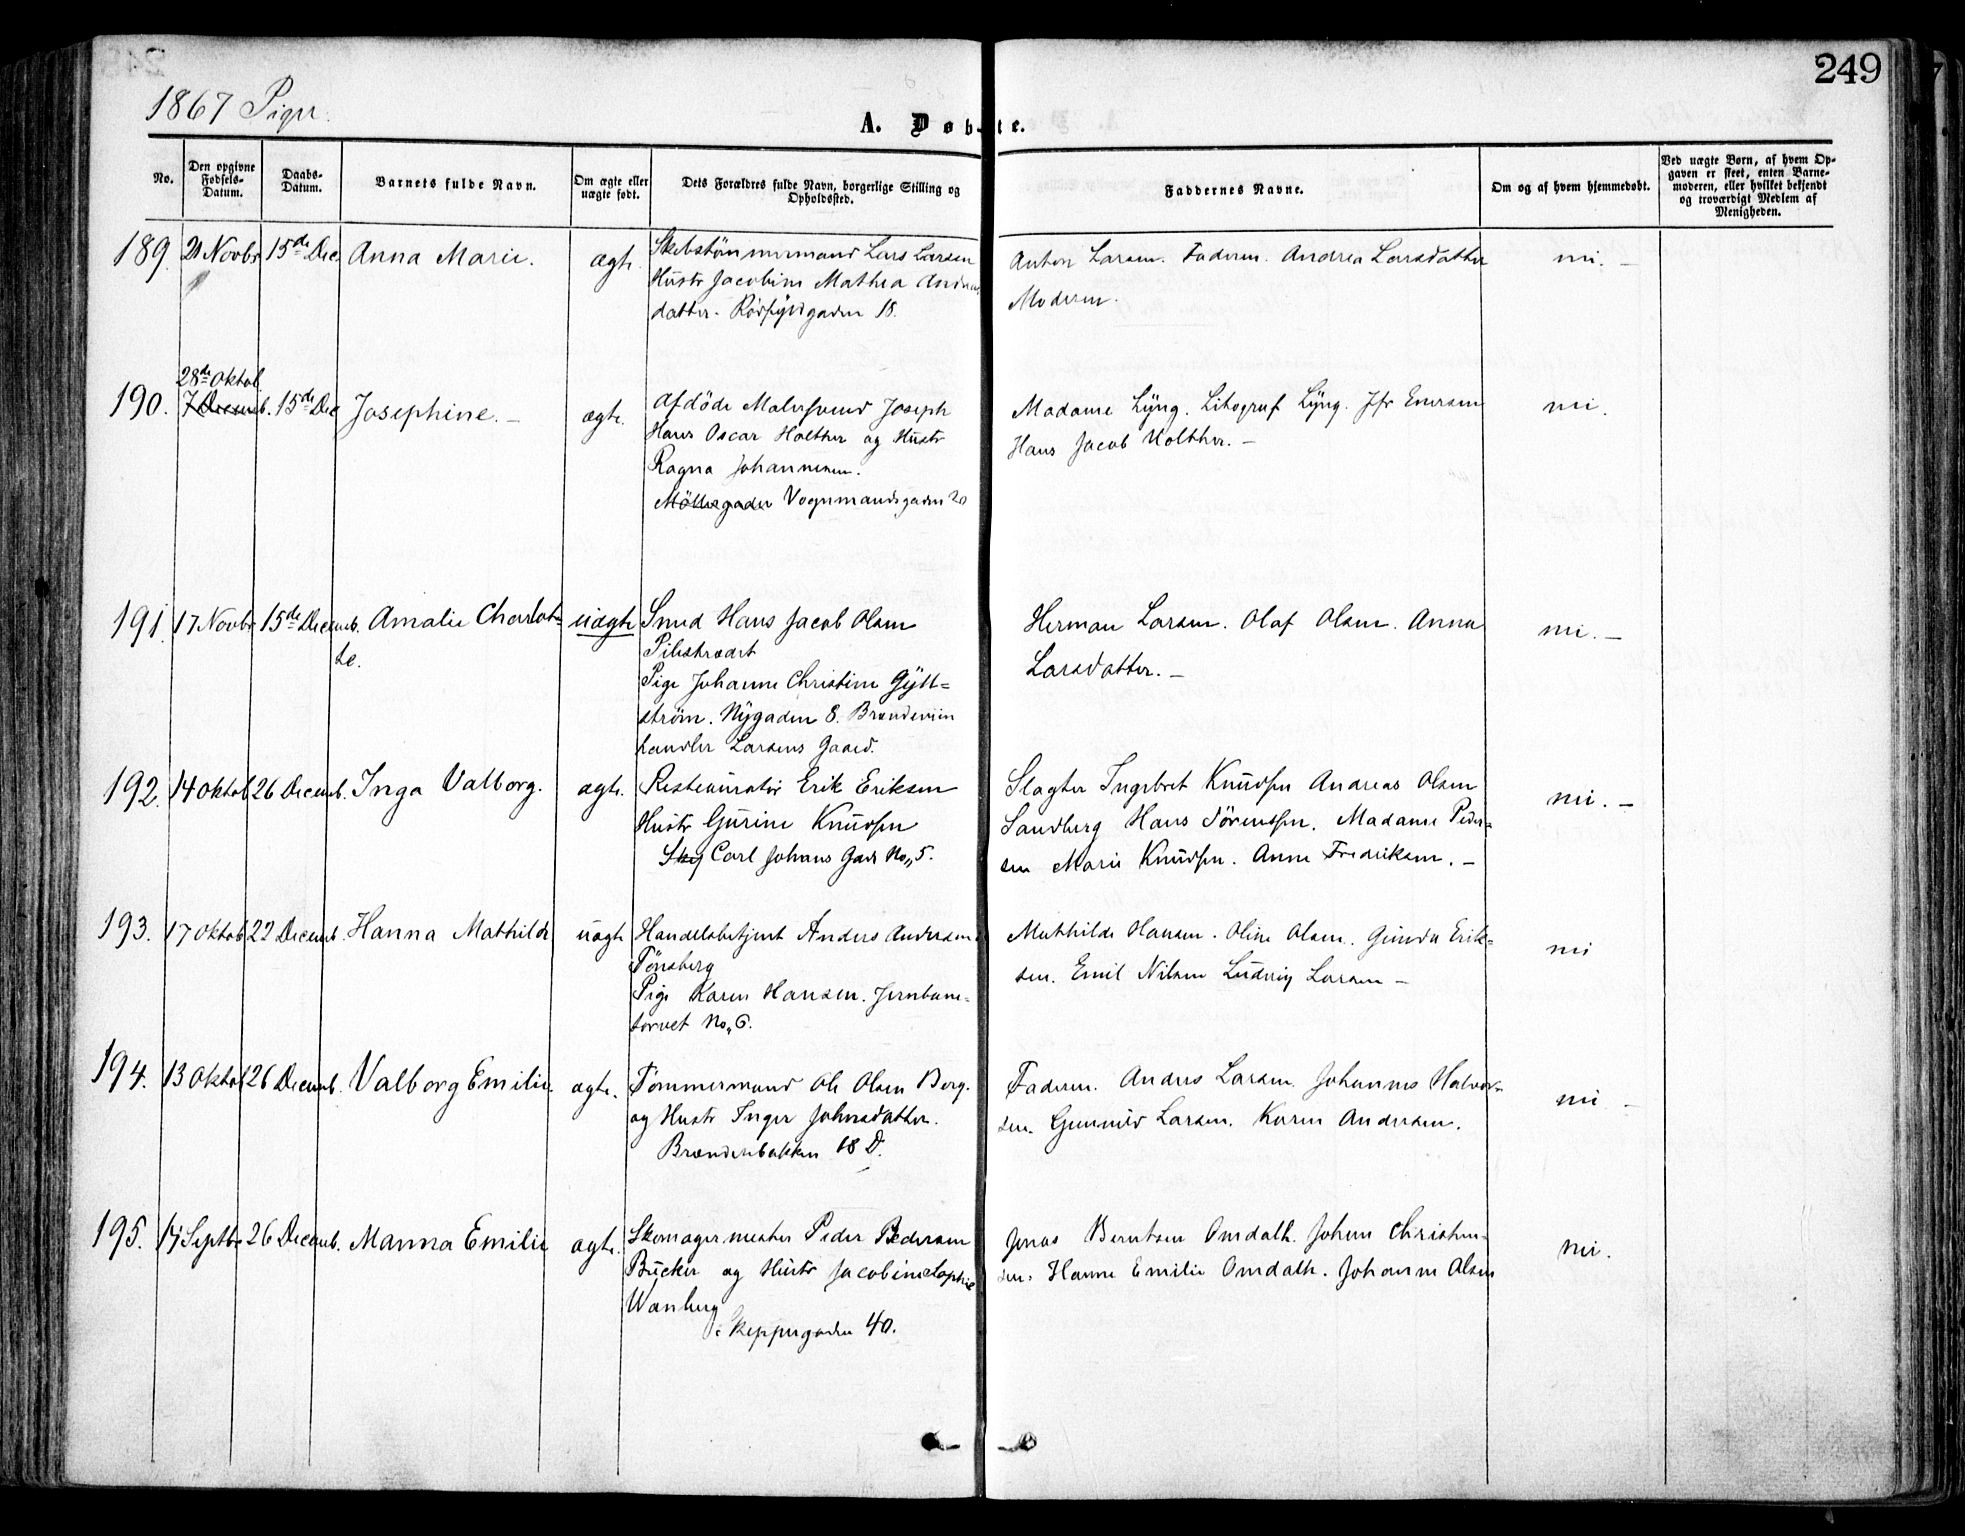 249
1867 Piger.
A. Døbte.
No.
Den opgivne Fødsels-Datum.
Daabs-Datum.
Barnets fulde Navn.
Om ægte eller uægte født.
Dets Forældres fulde Navn, borgerlige Stilling og Opholdssted.
Faddernes Navne.
Om og af hvem hjemmedøbt.
Ved uægte Børn, af hvem Opgaven er skeet, enten Barnemoderen, eller hvilket bekjendt og troværdigt Medlem af Menigheden.
189. 21 Novbr 15de Dec Anna Marie. ægte.
Skibstömmermand Lars Larsen
Hustr Jacobine Mathea Andreas
datter. Rödfyldgaden 18.
Anton Larsen. Faderen. Andrea Larsdatter
Moderen.
nei. –
28de Oktob.
190. 7 Decemb. 15de Dec Josephine. – ægte.
Afdöde Malersvend Joseph
Hans Oscar Holther og Hustr
Ragna Johannesen.
Möllergaden Vognmandsgaden 20
Madame Lyng. Litograf Lyng. Jfr Enersen
Hans Jacob Holther. –
nei.
191. 17 Novbr 15de Decemb. Amalie Charlot=
te.
uægte
Smed Hans Jacob Olsen
Pilestrædet
Pige Johanne Christine Gyll=
ström. Nygaden 8. Brændeviin
handler Larsens Gaard.
Herman Larsen. Olaf Olsen. Anna
Larsdatter. –
nei. –
192. 14 Oktob 26 Decemb. Inga Valborg. ægte.
Restauratör Erik Eriksen
Hustr Gurine Knudsen
Carl Johans Gade No 5.
Slagter Ingebret Knudsen Andreas Olsen
Sandberg Hans Sörenssen. Madame Peder=
sen Marie Knudsen. Anne Fredriksen. –
nei. –
193. 17 Oktob 22 Decemb. Hanna Mathilde uægte
Handelsbetjent Anders Andersen
Tönsberg
Pige Karen Hansen. Jernbane=
torvet No 6.
Mathilde Hansen. Oline Olsen. Gunda Erik=
sen. Emil Nilsen Ludvig Larsen –
nei
194. 13 Oktob 26 Decemb. Valborg Emilie. ægte.
Tömmermand Ole Olsen Berg.
og Hustr Inger Johnsdatter.
Brændenbakken 18 D.
Faderen. Anders Larsen. Johannes Halvor=
sen. Gunnild Larsen. Karen Andersen.
nei –
195. 14 Septbr 26 Decemb. Manna Emilie ægte.
Skomagermester Peder Pedersen
Bucker og Hustr Jacobine Sophie
Wanberg
Skippergaden 40.
Jonas Berntsen Omdalh. Johan Christen=
sen. Hanne Emilie Omdalh. Johanne Olsen
nei.